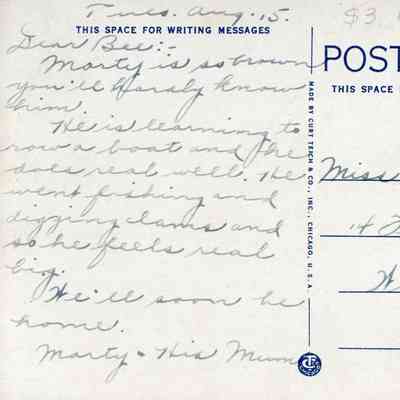 Tues. Aug. 15.
$3.
THIS SPACE FOR WRITING MESSAGES
Dear Bee:-
Marty is so brown
you'll hardly know
him.
He is learning to
row a boat and he
does real well. He
went fishing and
digging clams and
so he feels real
big.
We'll soon be
home.
Marty & His Mum
MADE BY CURT TEICH & CO., INC., CHICAGO, U.S.A.
POST
THIS SPACE
Miss
14
W